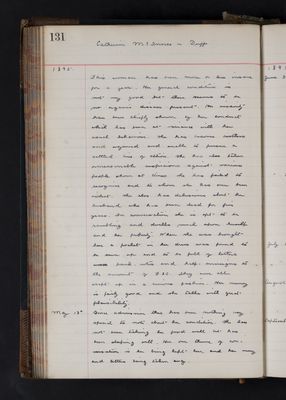 131
Catherine McInnes or Duff
1895.
This woman has been more or less insane
for a year. Her general condition is
not very good but there seems to be
no organic disease present. Her insanity
has been chiefly shown by her conduct
which has been at variance with her
usual behaviour. She has become restless
and and unable to pursue a
settled line of action. She has also taken
unreasonable suspicions against various
people whom at times she has failed to
recognise and to whom she has even been
violent. She also has delusions about her
husband who has been dead for five
years. In conversation she is apt to be
rambling and dwells much upon herself
and her . When she was brought
here a pocket in her dress was found to
be sewn up and to be full of letters
bank notes and half sovereigns to
the amount of £ . They were all
wrapt up in a curious fashion. Her memory
is fairly good and she talks with great
plausibility.
May 13th Since admission there has been nothing very
special to note about her condition. She has
not been taking her food well but has
been sleeping well. Her one theme of con-
versation is her being kept here and her money
and letters being taken away.